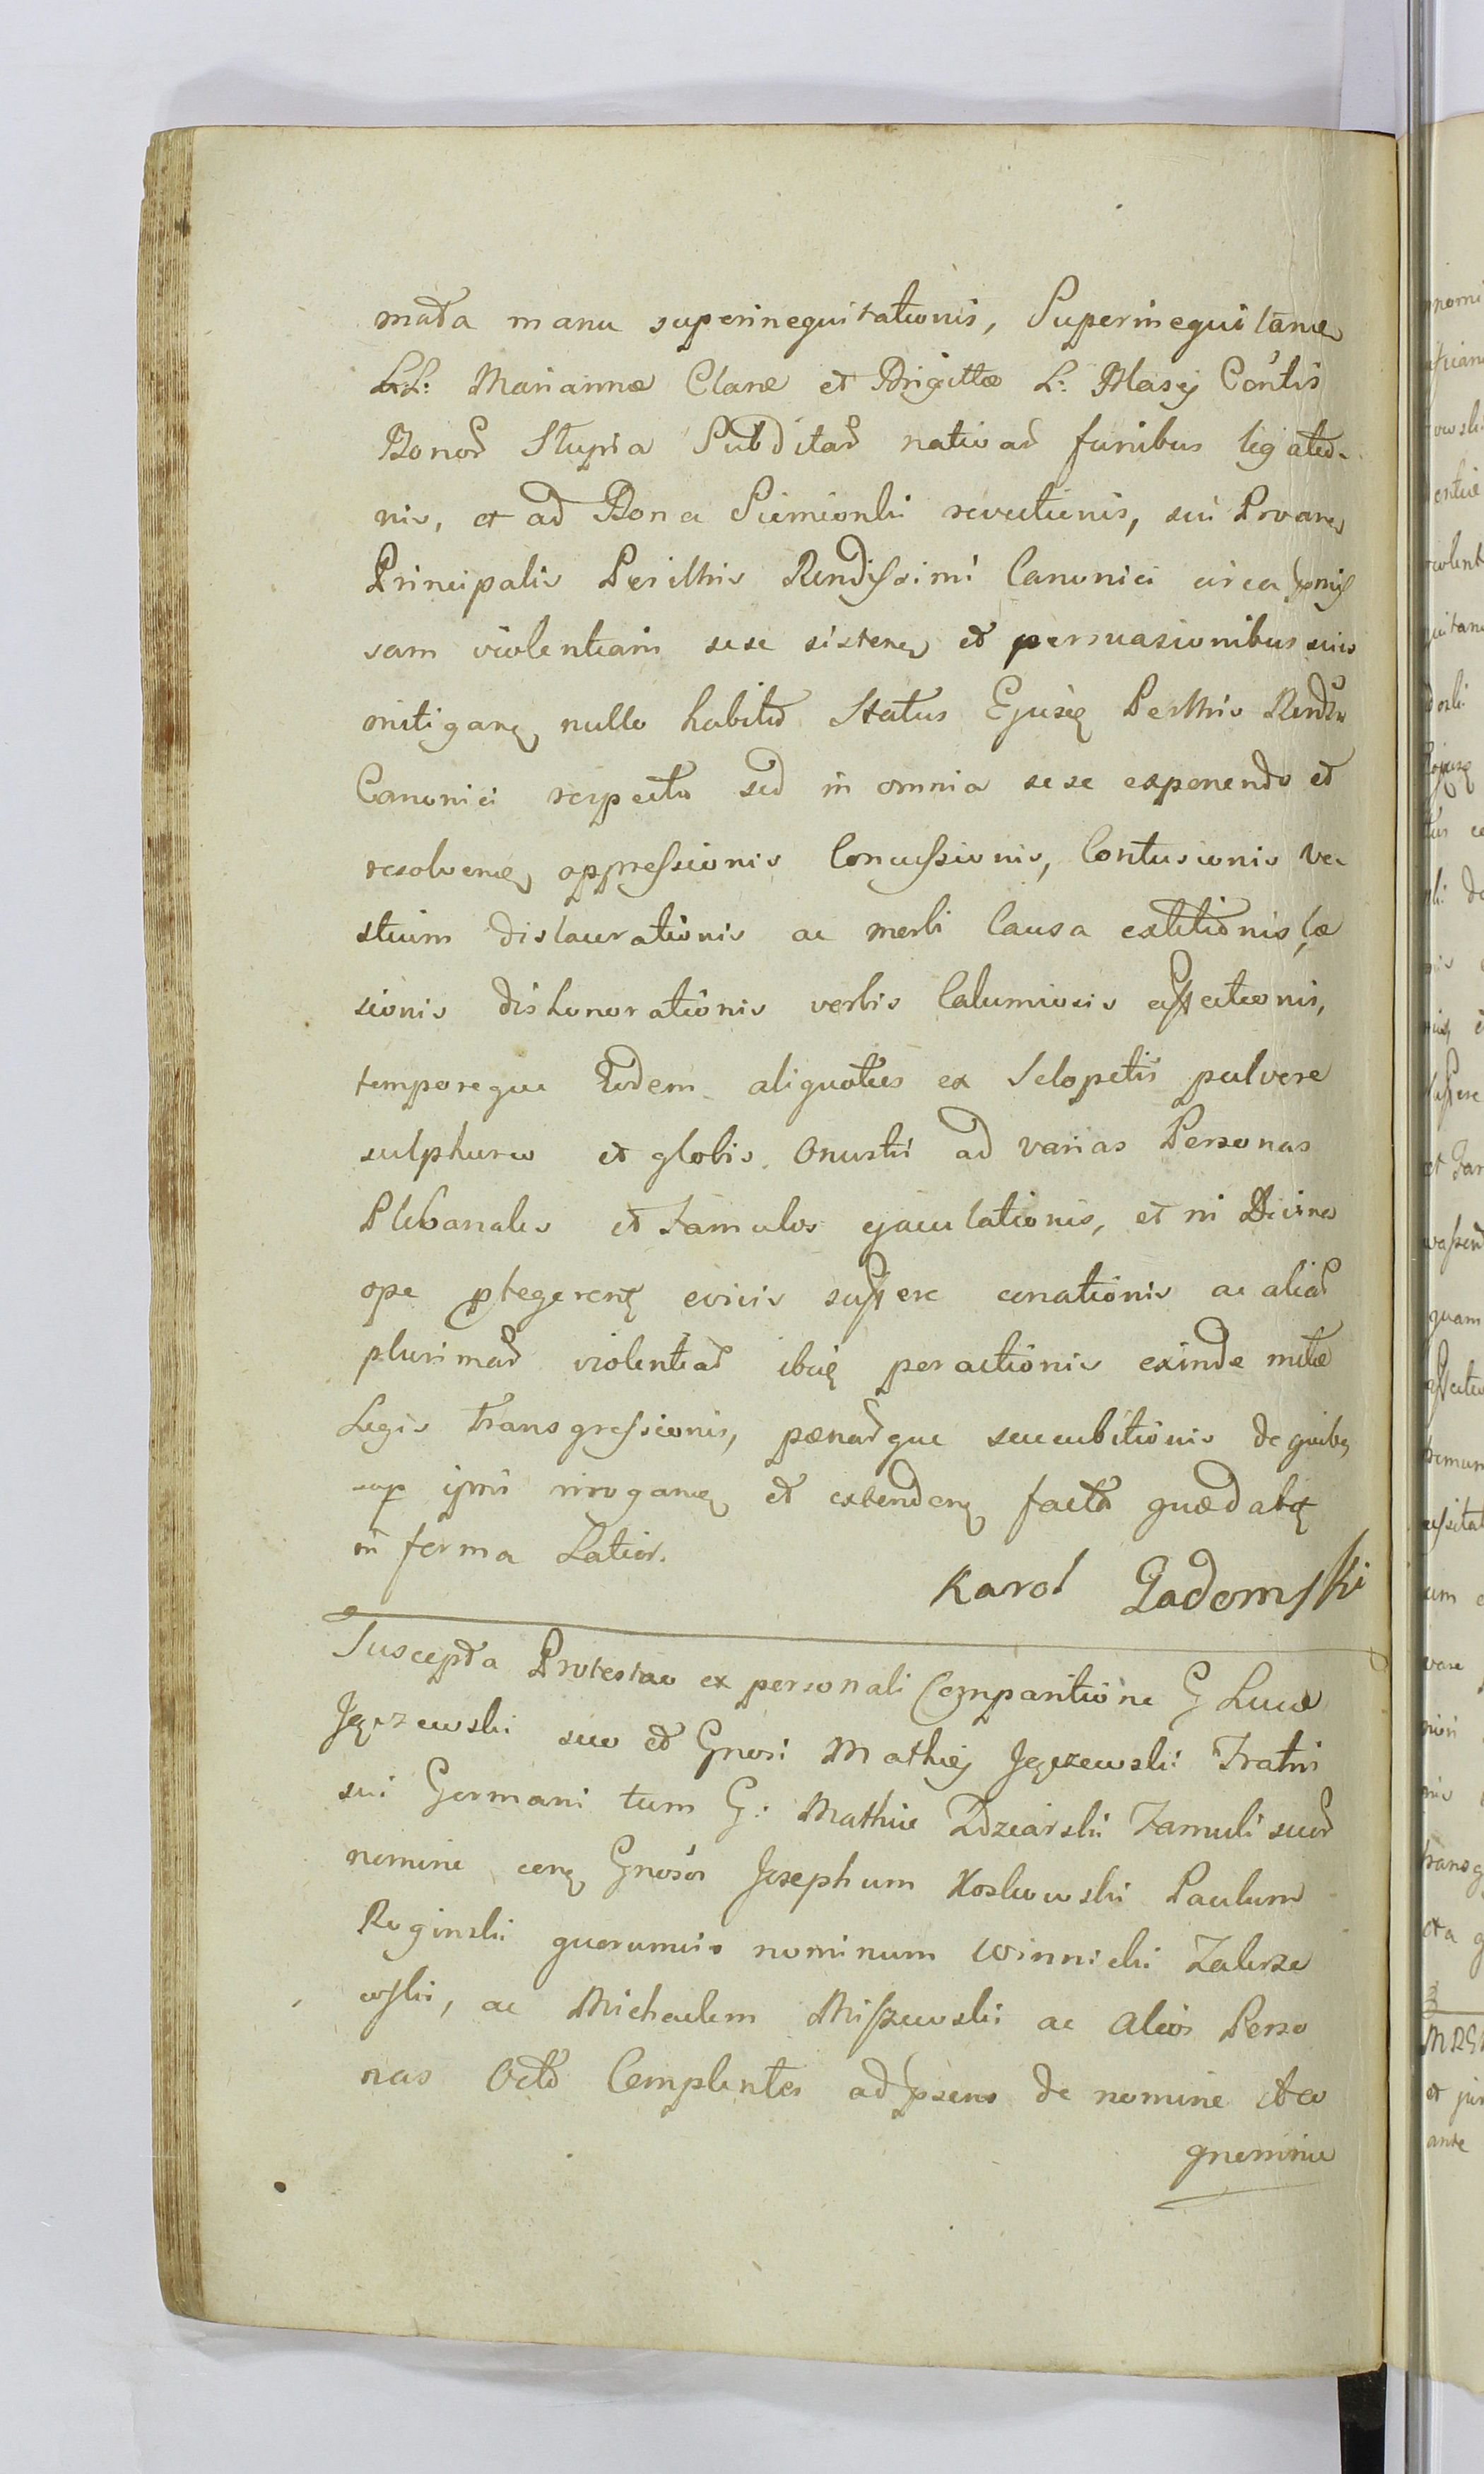 mata manu superinequitationis, Superinequitane
LL: Mariannæ Claræ et Brigittæ L: Blasij Contis
Bonor Slupia Subditar nativar funibus ligatio-
nis, et ad Bona Siemionki revectionis, sui Provare
Principalis Perillris Rendissimi Canonici circa pmis
sam violentiam sese sistene et persuasionibus suis
mitigane nullo habito Status Ejusq Perillris Rendi
Canonici respectu sed in omnia sese exponendo et
resolvene oppressionis Concussionis, Contusionis ve
stium dislacerationis ac morbi Causa extitionis læ
sionis dishonorationis verbis Calumniosis affectionis,
temporeque Eodem aliquoties ex Sclopetis pulvere
sulphureo et globis Onustis ad varias Personas
Plebanales et Famulos ejaculationis, et ni Divina
ope ptegerent e vivis suffere conationis ac aliar
plurimar violentiar ibiq peractionis exinde mltæ
Legis transgressionis, pænarque succubitionis de quibq
sup ipsis irrogane et extendene facta quædabt
in forma Latior.
Karol Gadomski
Suscepta Protestao ex personali Comparitione G Lucæ
Jęczewski suo et Gnosi Mathiej Jęczewski Fratris
sui Germani tum G: Mathiæ Zdziarski Famuli suor
nomine conq Gnosos Josephum Kosłowski Paulum
Roginski quorumvis nominum Winnicki Zakrze
wski, ac Michaelem Miszewski ac alios Perso
nas Octo Complentes ad psens de nomine et co
gnomine